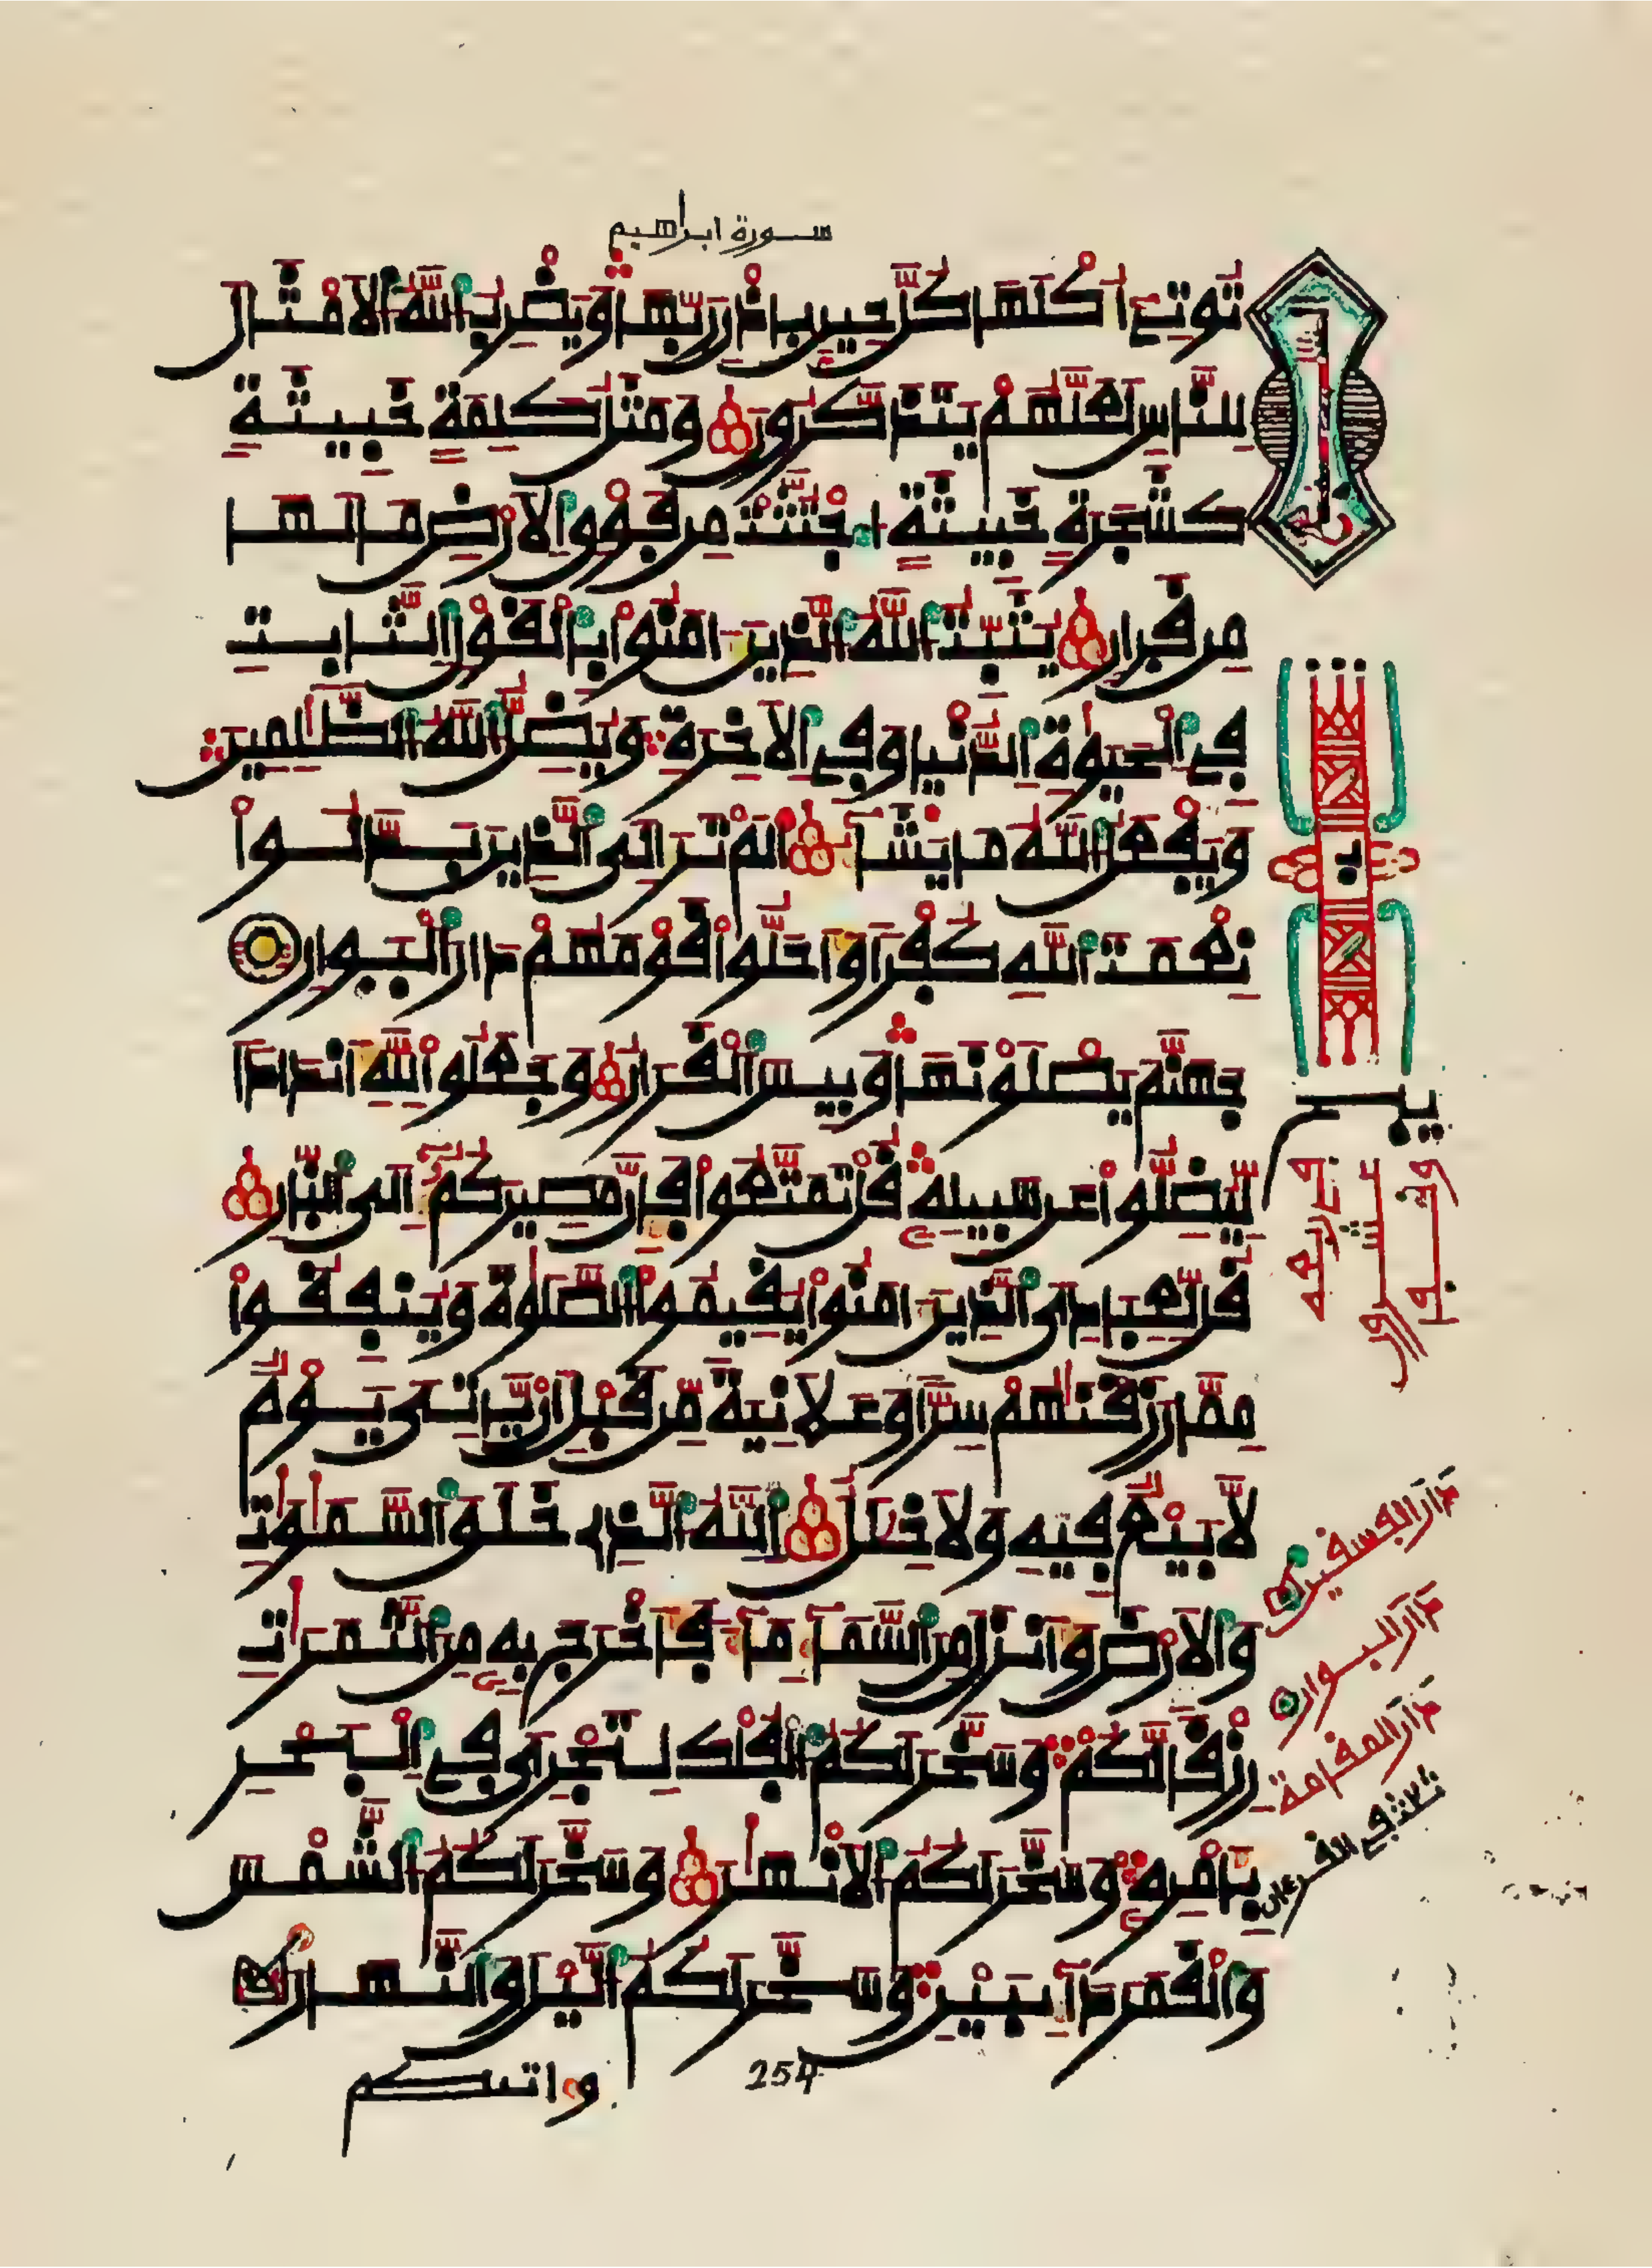 سورة ابراهيم
تُوتِے أُكْلَهَا كُلَّ حِينِۭ بِإِذْنِ رَبِّهَا وَيَضْرِبُ اللَّهُ الَامْثَالَ
لِلنَّاسِ لَعَلَّهُمْ يَتَذَكَّرُونَ وَمَثَلُ كَلِمَةٍ خَبِيثَةٍ
كَشَجَرَةٍ خَبِيثَةٍ اجْتُثَّتْ مِن فَوْقِ الَارْضِ مَا لَهَا
مِن قَرَارٍ يُثَبِّتُ اللَّهُ الَّذِينَ ءَامَنُوا بِالْقَوْلِ الثَّابِتِ
فِے الْحَيَوٰةِ الدُّنْيَا وَفِے الَاخِرَةِ وَيُضِلُّ اللَّهُ الظَّٰلِمِينَ
وَيَفْعَلُ اللَّهُ مَا يَشَآءُ أَلَمْ تَرَ إِلَى الَّذِينَ بَدَّلُوا
نِعْمَتَ اللَّهِ كُفْرًا وَأَحَلُّوا قَوْمَهُمْ دَارَ الْبَوَارِ
جَهَنَّمَ يَصْلَوْنَهَا وَبِيسَ الْقَرَارُ وَجَعَلُوا لِلهِ أَندَادًا
لِّيُضِلُّوا عَن سَبِيلِهِ قُلْ تَمَتَّعُوا فَإِنَّ مَصِيرَكُمُۥٓ إِلَى النَّارِ
قُل لِّعِبَادِىَ الَّذِينَ ءَامَنُوا يُقِيمُوا الصَّلَوٰةَ وَيُنفِقُوا
مِمَّا رَزَقْنَٰهُمْ سِرًّا وَعَلَانِيَةً مِّن قَبْلِ أَن يَّاتِىَ يَوْمٌ
لَّا بَيْعٌ فِيهِ وَلَا خِلَٰلٌ اللَّهُ الَّذِے خَلَقَ السَّمَٰوَٰتِ
وَالَارْضَ وَأَنزَلَ مِنَ السَّمَآءِ مَآءً فَأَخْرَجَ بِهِ مِنَ الثَّمَرَٰتِ
رِزْقًا لَّكُمْ وَسَخَّرَ لَكُمُ الْفُلْكَ لِتَجْرِىَ فِے الْبَحْرِ
بِأَمْرِهِ وَسَخَّرَ لَكُمُ الَانْهَٰرَ وَسَخَّرَ لَكُمُ الشَّمْسَ
وَالْقَمَرَ دَآئِبَيْنِ وَسَخَّرَ لَكُمُ الَّيْلَ وَالنَّهَارَ
254
واتىكم
دار الفسقين
دار البوار
دار المقامة
ثلاث في القرءان